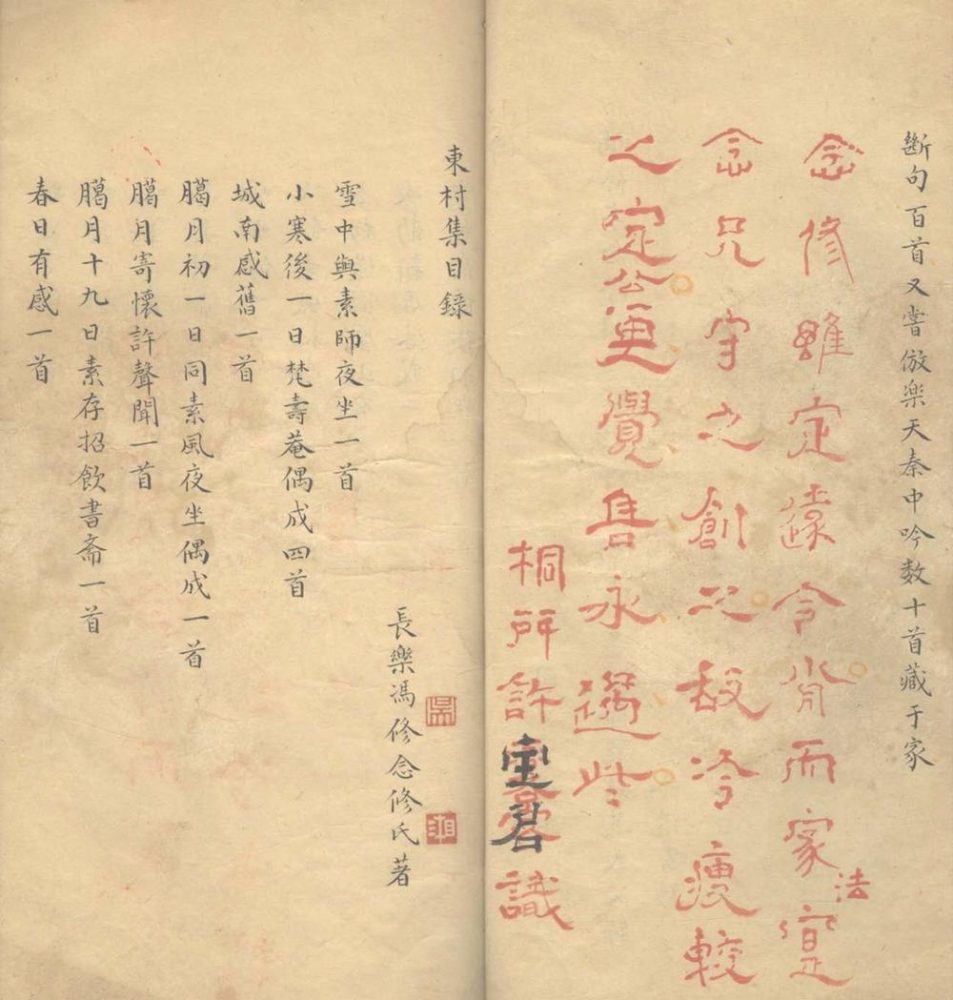 斷句百首又嘗倣楽天秦中吟数十首藏于家
念修雖定遠令而家法寔
念兄守之創之冷瘦較
之定公更覺雋永過些
桐所許宝君識
東村集目錄
長樂馮修念修氏著
雪中與素師夜坐一首
小寒後一日梵壽菴偶成四首
城南感舊一首
臈月初一日同素風夜坐偶成一首
臈月寄懷許聲聞一首
臈月十九日素存招飲書齋一首
春日有感一首